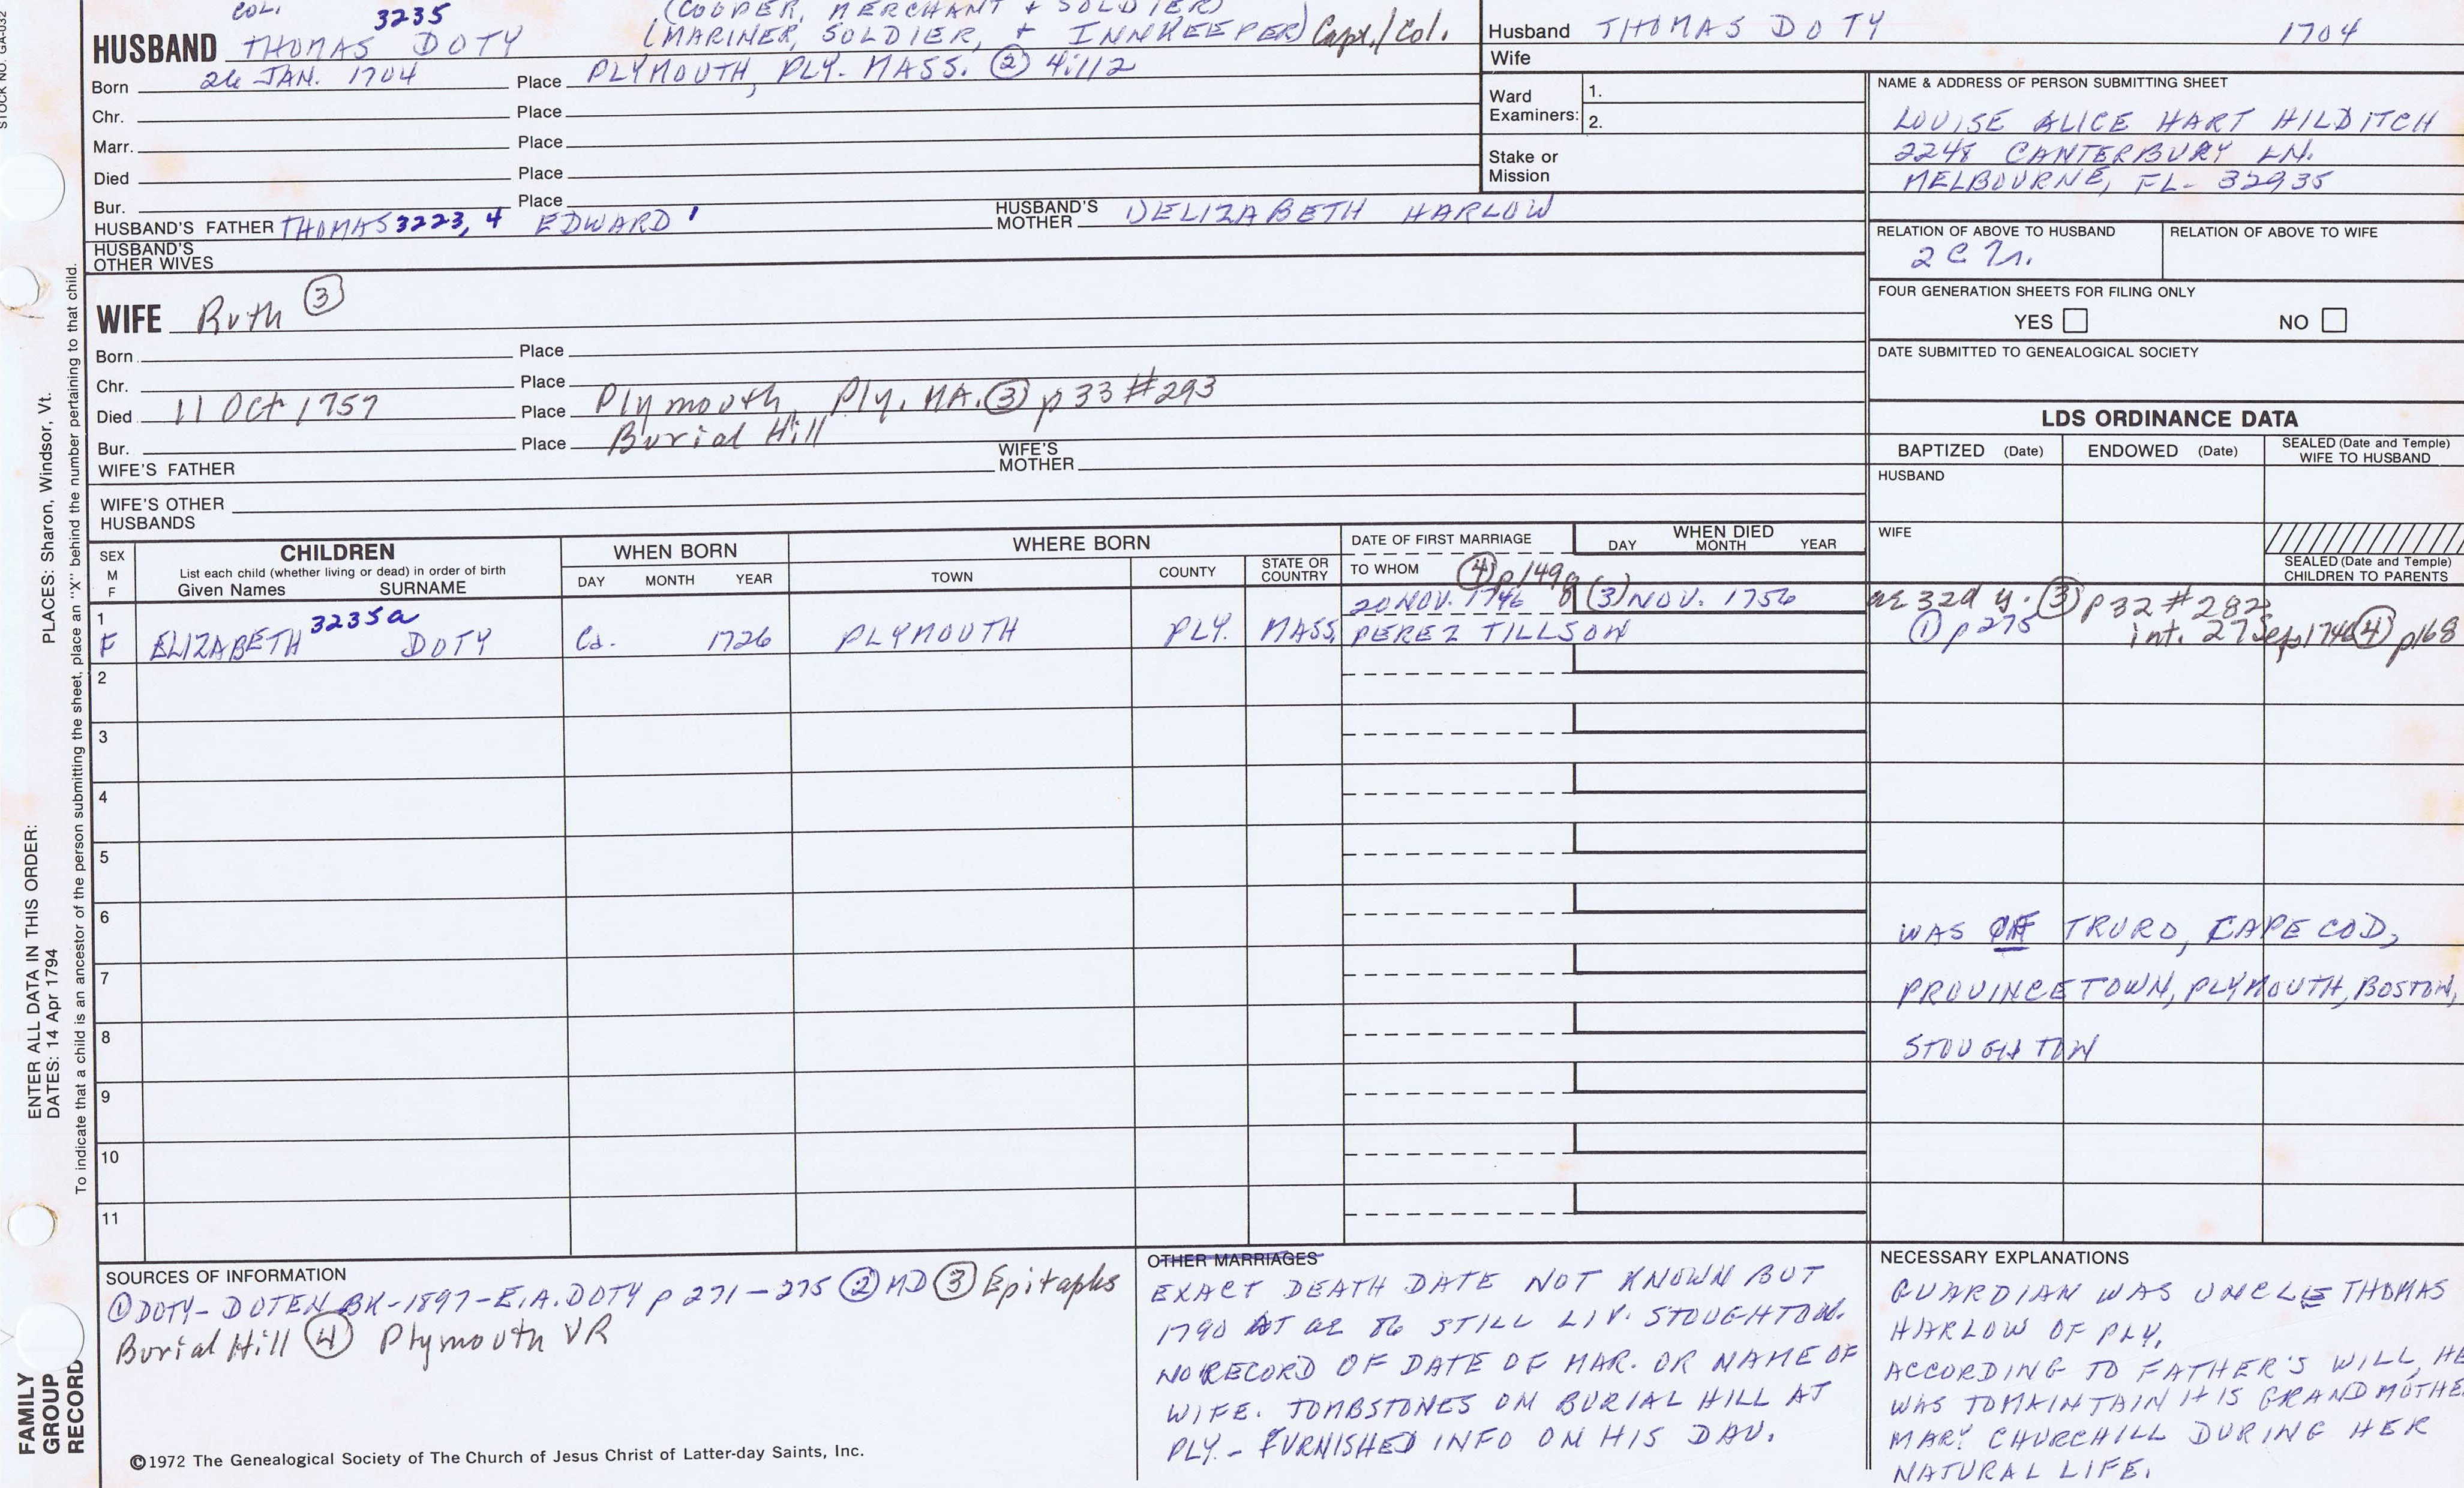 STOCK NO. GA-032
COL. 3235 (COOPER, MERCHANT & SOLDIER)
HUSBAND THOMAS DOTY (MARINER, SOLDIER, + INNKEEPER) Capt./Col.
Born 26 JAN. 1704 Place PLYMOUTH, PLY. MASS. ② 4:112
Chr. Place
Marr. Place
Died Place
Bur. Place
HUSBAND'S FATHER THOMAS 3223, 4 EDWARD 1 HUSBAND'S MOTHER 1) ELIZABETH HARLOW
HUSBAND'S OTHER WIVES
WIFE Ruth ③
Born Place
Chr. Place
Died 11 Oct 1757 Place Plymouth, Ply. MA. ③ p33 #293
Bur. Place Burial Hill
WIFE'S FATHER WIFE'S MOTHER
WIFE'S OTHER HUSBANDS
Husband THOMAS DOTY 1704
Wife
Ward Examiners: 1.
2.
Stake or Mission
NAME & ADDRESS OF PERSON SUBMITTING SHEET
LOUISE ALICE HART HILDITCH
2248 CANTERBURY LN.
MELBOURNE, FL- 32935
RELATION OF ABOVE TO HUSBAND RELATION OF ABOVE TO WIFE
2 C 7r.
FOUR GENERATION SHEETS FOR FILING ONLY
YES NO
DATE SUBMITTED TO GENEALOGICAL SOCIETY
LDS ORDINANCE DATA
BAPTIZED (Date) ENDOWED (Date) SEALED (Date and Temple) WIFE TO HUSBAND
HUSBAND
WIFE
SEALED (Date and Temple) CHILDREN TO PARENTS
SEX M F CHILDREN WHEN BORN WHERE BORN DATE OF FIRST MARRIAGE WHEN DIED
List each child (whether living or dead) in order of birth
Given Names SURNAME DAY MONTH YEAR TOWN COUNTY STATE OR COUNTRY TO WHOM DAY MONTH YEAR
④ p149
1 20 NOV. 1746 8 (3) NOV. 1756 ae 32d y. ③ p32 #282
F ELIZABETH 3235a DOTY Ca. 1726 PLYMOUTH PLY. MASS. PEREZ TILLSON ① p275 int. 27 Sep 1746 ④ p168
2
3
4
5
6
WAS OF TRURO, CAPE COD,
7
PROVINCETOWN, PLYMOUTH, BOSTON,
8
STOUGHTON
9
10
11
SOURCES OF INFORMATION
① DOTY-DOTEN BK-1897-E.A. DOTY p 271-275 ② MD ③ Epitaphs
Burial Hill ④ Plymouth VR
©1972 The Genealogical Society of The Church of Jesus Christ of Latter-day Saints, Inc.
OTHER MARRIAGES
EXACT DEATH DATE NOT KNOWN BUT
1790 AT ae 86 STILL LIV. STOUGHTON.
NO RECORD OF DATE OF MAR. OR NAME OF
WIFE. TOMBSTONES ON BURIAL HILL AT
PLY.- FURNISHED INFO ON HIS DAU.
NECESSARY EXPLANATIONS
GUARDIAN WAS UNCLE THOMAS
HARLOW OF PLY.
ACCORDING TO FATHER'S WILL, HE
WAS TO MAINTAIN HIS GRANDMOTHE
MARY CHURCHILL DURING HER
NATURAL LIFE.
PLACES: Sharon, Windsor, Vt.
ENTER ALL DATA IN THIS ORDER:
DATES: 14 Apr 1794
To indicate that a child is an ancestor of the person submitting the sheet, place an "X" behind the number pertaining to that child.
FAMILY
GROUP
RECORD